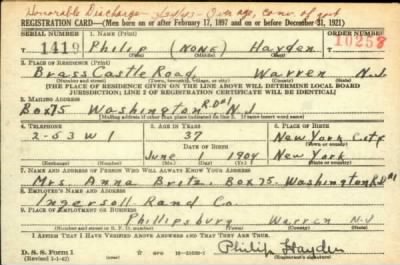 Honorable Discharge - over age, conv of govt
REGISTRATION CARD—(Men born on or after February 17, 1897 and on or before December 31, 1921)
SERIAL NUMBER 1. NAME (Print) ORDER NUMBER
1419 Philip (NONE) Hayden 10258
2. PLACE OF RESIDENCE (Print)
Brass Castle Road Warren N.J.
(Number and street) (Town, township, village, or city) (County) (State)
[THE PLACE OF RESIDENCE GIVEN ON THE LINE ABOVE WILL DETERMINE LOCAL BOARD
JURISDICTION; LINE 2 OF REGISTRATION CERTIFICATE WILL BE IDENTICAL]
3. MAILING ADDRESS
Box 75 Washington R.D#1 N.J
[Mailing address if other than place indicated on line 2. If same insert word same]
4. TELEPHONE 5. AGE IN YEARS 6. PLACE OF BIRTH
2-53 W 1 37 New York City
DATE OF BIRTH (Town or county)
June 1 1904 New York
(Exchange) (Number) (Mo.) (Day) (Yr.) (State or country)
7. NAME AND ADDRESS OF PERSON WHO WILL ALWAYS KNOW YOUR ADDRESS
Mrs. Anna Box 75. Washington R.D#1
8. EMPLOYER'S NAME AND ADDRESS
Ingersoll Rand Co.
9. PLACE OF EMPLOYMENT OR BUSINESS
Phillipsburg Warren N.J
(Number and street or R. F. D. number) (Town) (County) (State)
I AFFIRM THAT I HAVE VERIFIED ABOVE ANSWERS AND THAT THEY ARE TRUE.
Philip Hayden
D. S. S. Form 1
(Revised 1-1-42) (over) (Registrant's signature)